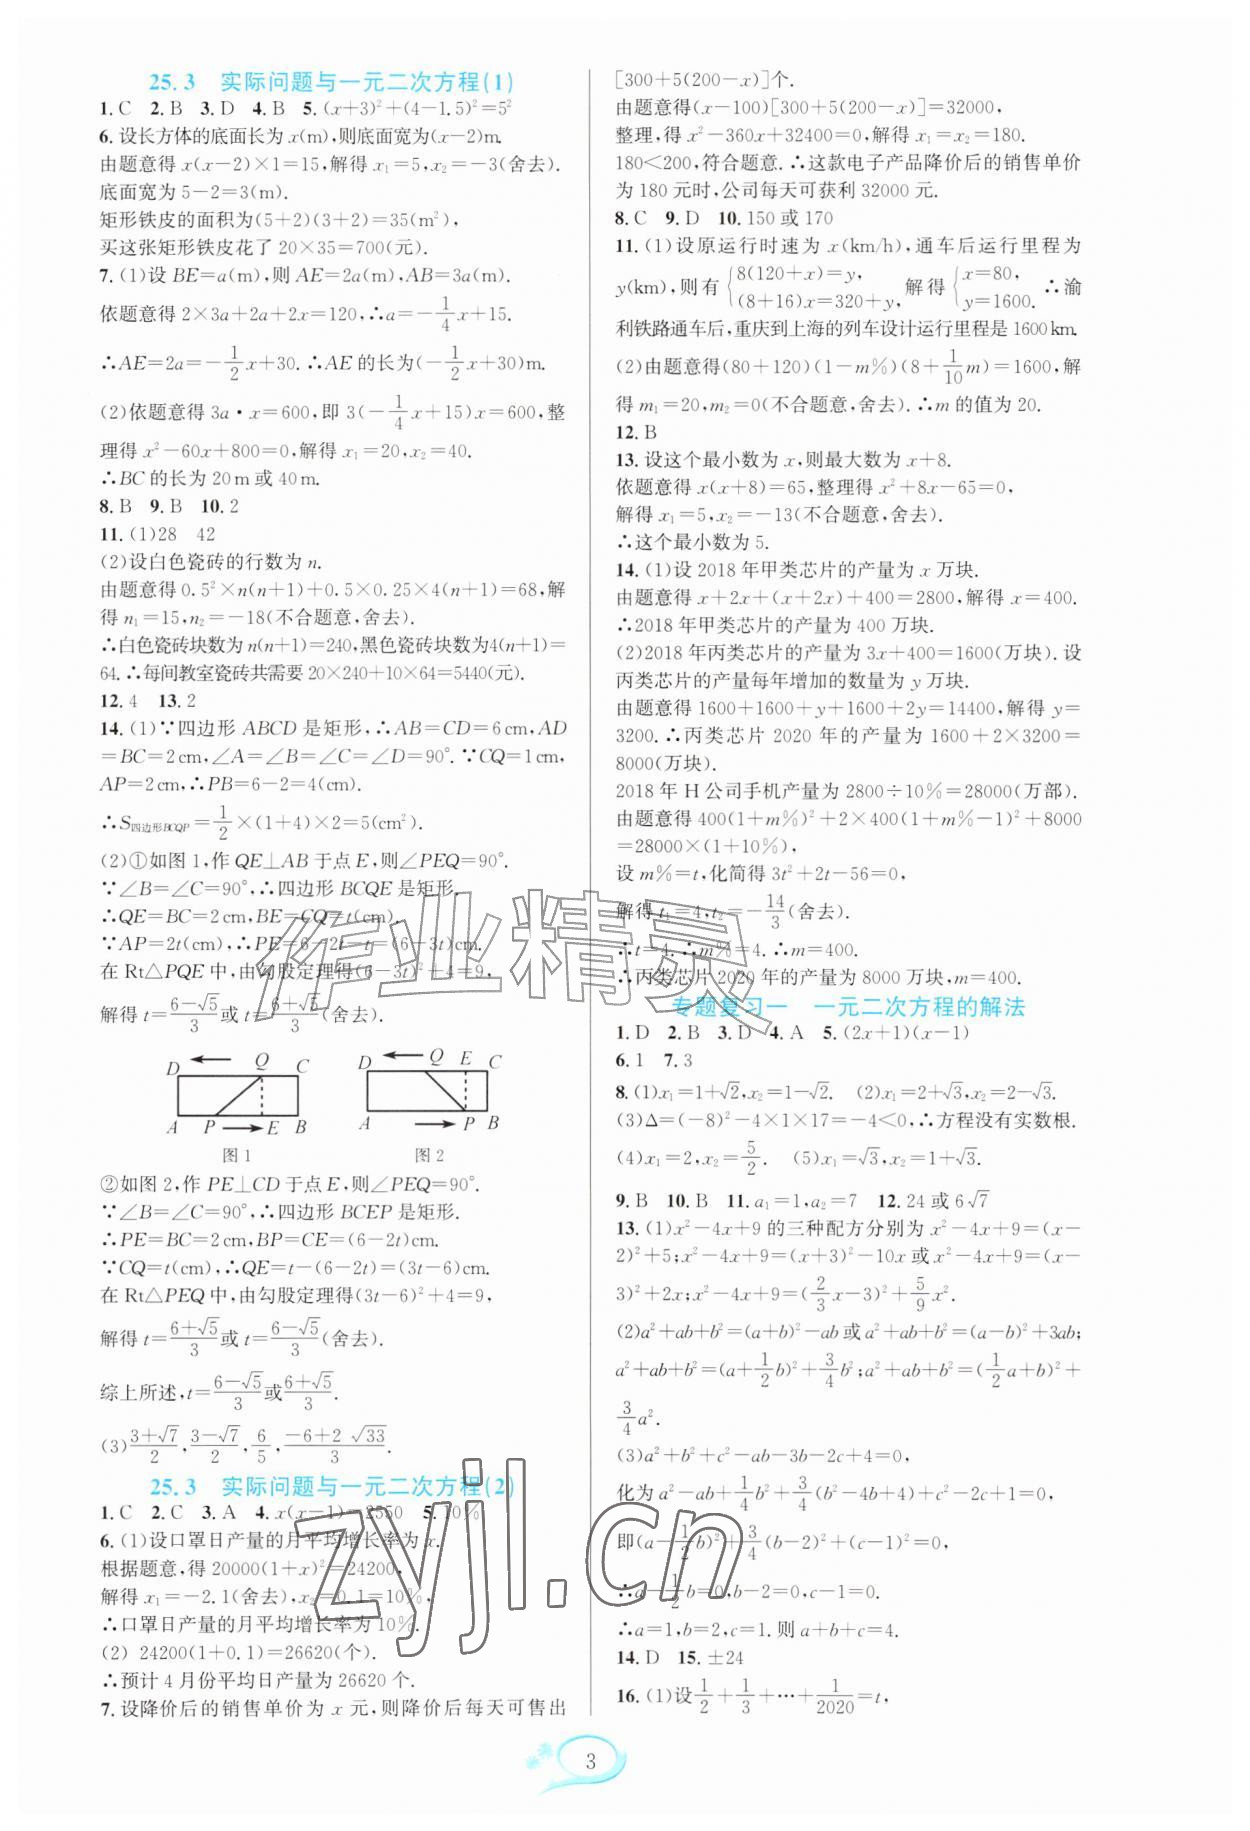 25.3 实际问题与一元二次方程(1)
1. C 2. B 3. D 4. B 5. (x+3)²+(4-1.5)²=5²
6. 设长方体的底面长为 x(m),则底面宽为(x-2)m.
由题意得 x(x-2)×1=15,解得 x₁=5,x₂=-3(舍去).
底面宽为 5-2=3(m).
矩形铁皮的面积为(5+2)(3+2)=35(m²),
买这张矩形铁皮花了 20×35=700(元).
7. (1)设 BE=a(m),则 AE=2a(m),AB=3a(m).
依题意得 2×3a+2a+2x=120,∴a=-1/4x+15.
∴AE=2a=-1/2x+30.∴AE 的长为(-1/2x+30)m.
(2)依题意得 3a·x=600,即 3(-1/4x+15)x=600,整
理得 x²-60x+800=0,解得 x₁=20,x₂=40.
∴BC 的长为 20 m 或 40 m.
8. B 9. B 10. 2
11. (1)28 42
(2)设白色瓷砖的行数为 n.
由题意得 0.5²×n(n+1)+0.5×0.25×4(n+1)=68,解
得 n₁=15,n₂=-18(不合题意,舍去).
∴白色瓷砖块数为 n(n+1)=240,黑色瓷砖块数为4(n+1)=
64.∴每间教室瓷砖共需要 20×240+10×64=5440(元).
12. 4 13. 2
14. (1)∵四边形 ABCD 是矩形,∴AB=CD=6 cm,AD
=BC=2 cm,∠A=∠B=∠C=∠D=90°.∵CQ=1 cm,
AP=2 cm,∴PB=6-2=4(cm).
∴S四边形BCQP=1/2×(1+4)×2=5(cm²).
(2)①如图 1,作 QE⊥AB 于点 E,则∠PEQ=90°.
∵∠B=∠C=90°,∴四边形 BCQE 是矩形.
∴QE=BC=2 cm,BE=CQ=t(cm).
∵AP=2t(cm),∴PE=6-2t-t=(6-3t)cm.
在 Rt△PQE 中,由勾股定理得(6-3t)²+4=9,
解得 t=(6-√5)/3 或 t=(6+√5)/3(舍去).
D Q C
A P E B
图 1
D E C
A P B
图 2
②如图 2,作 PE⊥CD 于点 E,则∠PEQ=90°.
∵∠B=∠C=90°,∴四边形 BCEP 是矩形.
∴PE=BC=2 cm,BP=CE=(6-2t)cm.
∵CQ=t(cm),∴QE=t-(6-2t)=(3t-6)cm.
在 Rt△PEQ 中,由勾股定理得(3t-6)²+4=9,
解得 t=(6+√5)/3 或 t=(6-√5)/3(舍去).
综上所述,t=(6-√5)/3 或 (6+√5)/3.
(3)(3+√7)/2,(3-√7)/2,6/5,(-6+2√33)/3.
25.3 实际问题与一元二次方程(2)
1. C 2. C 3. A 4. x(x-1)=2550 5. 10%
6. (1)设口罩日产量的月平均增长率为 x.
根据题意,得 20000(1+x)²=24200,
解得 x₁=-2.1(舍去),x₂=0.1=10%.
∴口罩日产量的月平均增长率为 10%.
(2) 24200(1+0.1)=26620(个).
∴预计 4 月份平均日产量为 26620 个.
7. 设降价后的销售单价为 x 元,则降价后每天可售出
[300+5(200-x)]个.
由题意得(x-100)[300+5(200-x)]=32000,
整理,得 x²-360x+32400=0,解得 x₁=x₂=180.
180<200,符合题意.∴这款电子产品降价后的销售单价
为 180 元时,公司每天可获利 32000 元.
8. C 9. D 10. 150 或 170
11. (1)设原运行时速为 x(km/h),通车后运行里程为
y(km),则有{8(120+x)=y, (8+16)x=320+y, 解得{x=80, y=1600. ∴渝
利铁路通车后,重庆到上海的列车设计运行里程是 1600 km.
(2)由题意得(80+120)(1-m%)(8+1/10m)=1600,解
得 m₁=20,m₂=0(不合题意,舍去).∴m 的值为 20.
12. B
13. 设这个最小数为 x,则最大数为 x+8.
依题意得 x(x+8)=65,整理得 x²+8x-65=0,
解得 x₁=5,x₂=-13(不合题意,舍去).
∴这个最小数为 5.
14. (1)设 2018 年甲类芯片的产量为 x 万块.
由题意得 x+2x+(x+2x)+400=2800,解得 x=400.
∴2018 年甲类芯片的产量为 400 万块.
(2)2018 年丙类芯片的产量为 3x+400=1600(万块).设
丙类芯片的产量每年增加的数量为 y 万块.
由题意得 1600+1600+y+1600+2y=14400,解得 y=
3200.∴丙类芯片 2020 年的产量为 1600+2×3200=
8000(万块).
2018 年 H 公司手机产量为 2800÷10%=28000(万部).
由题意得 400(1+m%)²+2×400(1+m%-1)²+8000
=28000×(1+10%),
设 m%=t,化简得 3t²+2t-56=0,
解得 t₁=4,t₂=-14/3(舍去).
∴t=4.∴m%=4.∴m=400.
∴丙类芯片 2020 年的产量为 8000 万块,m=400.
专题复习一 一元二次方程的解法
1. D 2. B 3. D 4. A 5. (2x+1)(x-1)
6. 1 7. 3
8. (1)x₁=1+√2,x₂=1-√2. (2)x₁=2+√3,x₂=2-√3.
(3)Δ=(-8)²-4×1×17=-4<0,∴方程没有实数根.
(4)x₁=2,x₂=5/2. (5)x₁=√3,x₂=1+√3.
9. B 10. B 11. a₁=1,a₂=7 12. 24 或 6√7
13. (1)x²-4x+9 的三种配方分别为 x²-4x+9=(x-
2)²+5;x²-4x+9=(x+3)²-10x 或 x²-4x+9=(x-
3)²+2x;x²-4x+9=(2/3x-3)²+5/9x².
(2)a²+ab+b²=(a+b)²-ab 或 a²+ab+b²=(a-b)²+3ab;
a²+ab+b²=(a+1/2b)²+3/4b²;a²+ab+b²=(1/2a+b)²+
3/4a².
(3)a²+b²+c²-ab-3b-2c+4=0,
化为 a²-ab+1/4b²+3/4(b²-4b+4)+c²-2c+1=0,
即(a-1/2b)²+3/4(b-2)²+(c-1)²=0,
∴a-1/2b=0,b-2=0,c-1=0.
∴a=1,b=2,c=1.则 a+b+c=4.
14. D 15. ±24
16. (1)设1/2+1/3+…+1/2020=t,
3
作业精灵
zyjl.cn